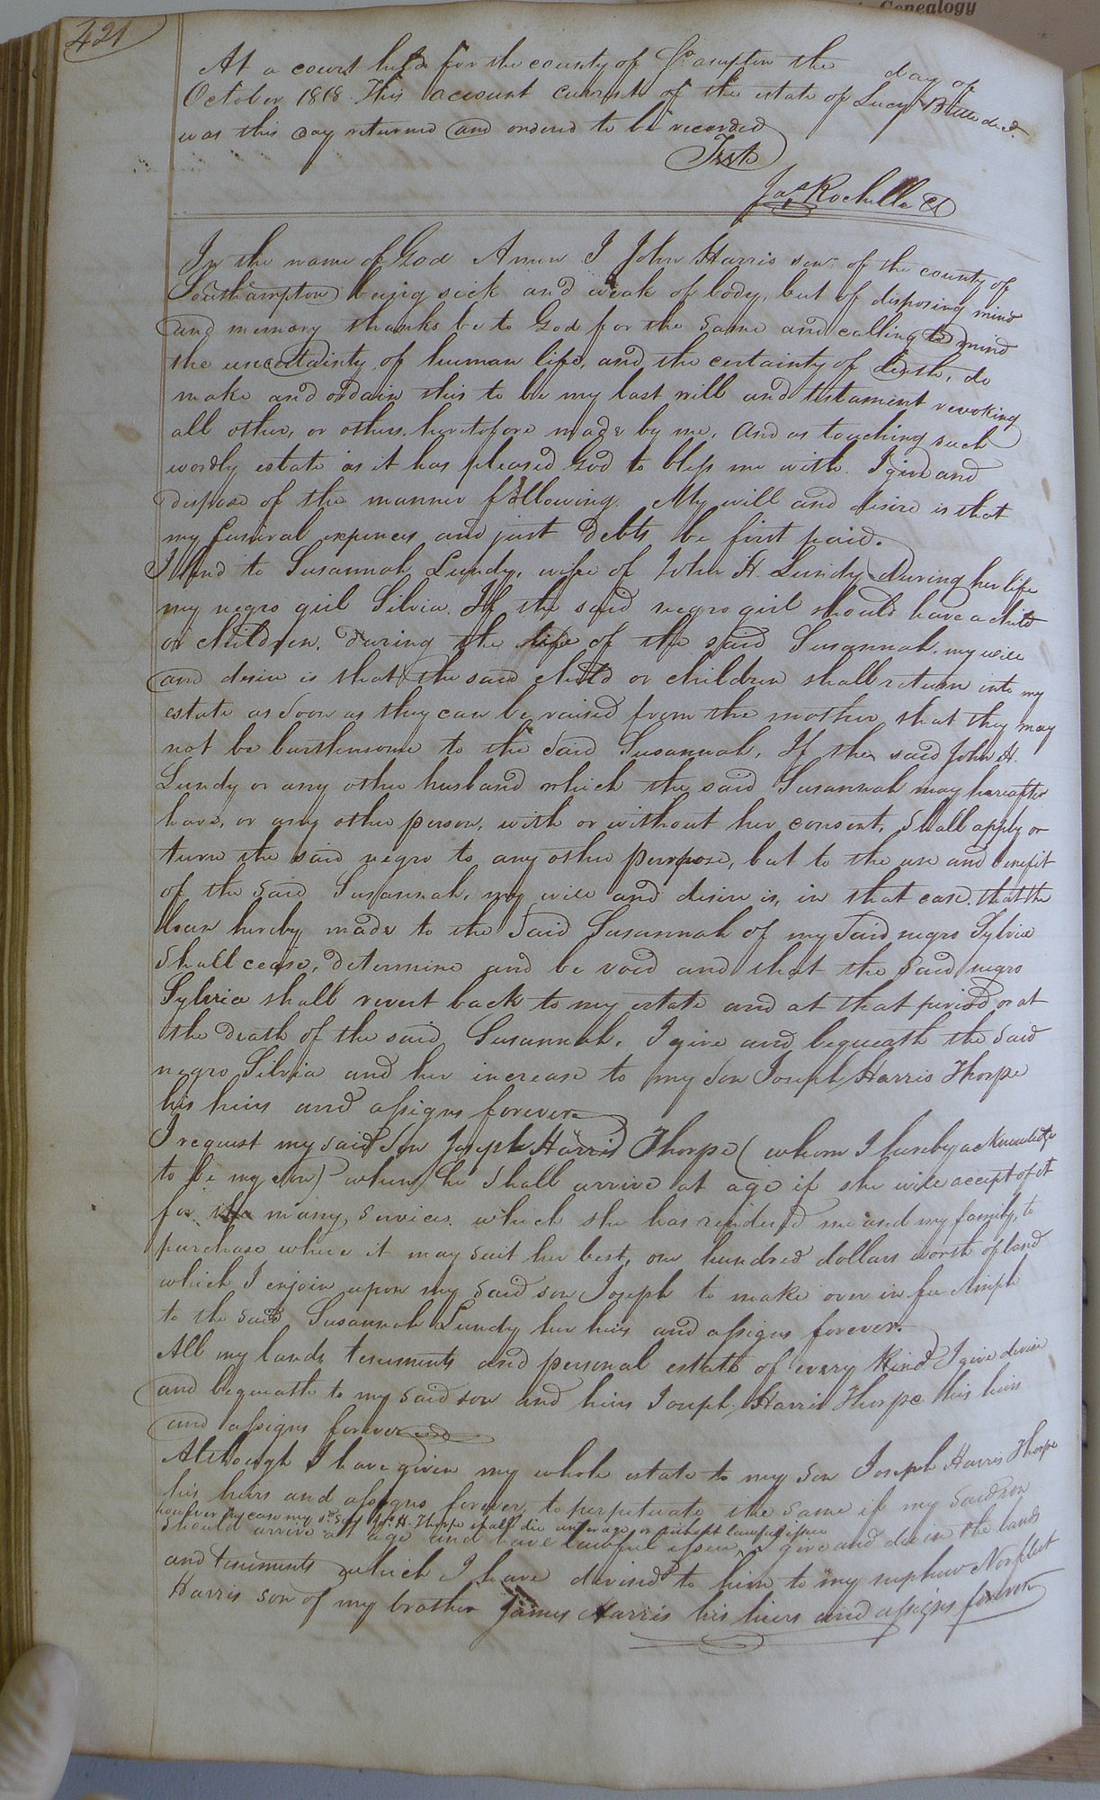 Genealogy
421
At a court held for the county of So.ampton the day of
October 1818 This account current of the estate of Lucy decd.
was this day returned and ordered to be recorded
Test
Jas Rochelle Cl
In the name of God Amen I John Harris senr of the county of
Southampton being sick and weak of body, but of disposing mind
and memory thanks be to God for the same and calling to mind
the uncertainty of human life, and the certainty of death, do
make and ordain this to be my last will and testament revoking
all other, or others heretofore made by me. And as touching such
wordly estate as it has pleased God to bless me with. I give and
dispose of the manner following. My will and desire is that
my funeral expences and just debts be first paid.
I lend to Susannah Lundy, wife of John H. Lundy during her life
my negro girl Silvia. If the said negro girl should have a child
or children, during the life of the said Susannah, my will
and desire is that the said child or children shall return into my
estate as soon as they can be raised from the mother, that they may
not be burthensome to the said Susannah. If the said John H.
Lundy or any other husband which the said Susannah may hereafter
have, or any other person, with or without her consent, shall apply or
turn the said negro to any other purpose, but to the use and benefit
of the said Susannah, my will and desire is, in that case, that the
loan hereby made to the said Susannah of my said negro Sylvia
shall cease, determine and be void and that the said negro
Sylvia shall revert back to my estate and at that period or at
the death of the said Susannah. I give and bequeath the said
negro Silvia and her increase to my son Joseph Harris Thorpe
his heirs and assigns forever
I request my said son Joseph Harris Thorpe (whom I hereby acknowledge
to be my son) when he shall arrive at age if she will accept of it
for the many services which she has rendered me and my family, to
purchase where it may suit her best, one hundred dollars worth of land
which I enjoin upon my said son Joseph to make over in fee simple
to the said Susannah Lundy her heirs and assigns forever.
All my lands tenements and personal estate of every kind I give devise
and bequeath to my said son and heirs Joseph Harris Thorpe his heirs
and assigns forever
Although I have given my whole estate to my son Joseph Harris Thorpe
his heirs and assigns forever, to perpetuate the same if my said son
however in case my sd. son Jos. H. Thorpe shall die under age, or without lawful issue
should arrive at age and have lawful issue, I give and devise the lands
and tenements which I have devised to him to my nephew Norfleet
Harris son of my brother James Harris his heirs and assigns forever